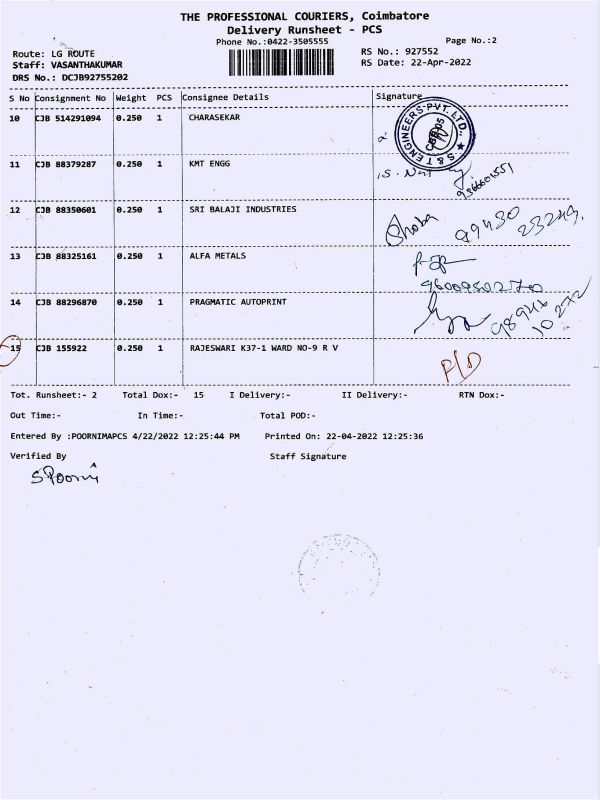 THE PROFESSIONAL COURIERS, Coimbatore
Delivery Runsheet - PCS
Phone No.:0422-3505555
Page No.:2
Route: LG ROUTE
RS No.: 927552
Staff: VASANTHAKUMAR
RS Date: 22-Apr-2022
DRS No.: DCJB92755202
S No Consignment No Weight PCS Consignee Details Signature
10 CJB 514291094 0.250 1 CHARASEKAR
S & T ENGINEERS PVT. LTD.
11 CJB 88379287 0.250 1 KMT ENGG
12 CJB 88350601 0.250 1 SRI BALAJI INDUSTRIES
Shoba 99430 23249
13 CJB 88325161 0.250 1 ALFA METALS
9600950270
14 CJB 88296870 0.250 1 PRAGMATIC AUTOPRINT
98946
10272
15 CJB 155922 0.250 1 RAJESWARI K37-1 WARD NO-9 R V
P/D
Tot. Runsheet:- 2 Total Dox:- 15 I Delivery:- II Delivery:- RTN Dox:-
Out Time:- In Time:- Total POD:-
Entered By :POORNIMAPCS 4/22/2022 12:25:44 PM Printed On: 22-04-2022 12:25:36
Verified By Staff Signature